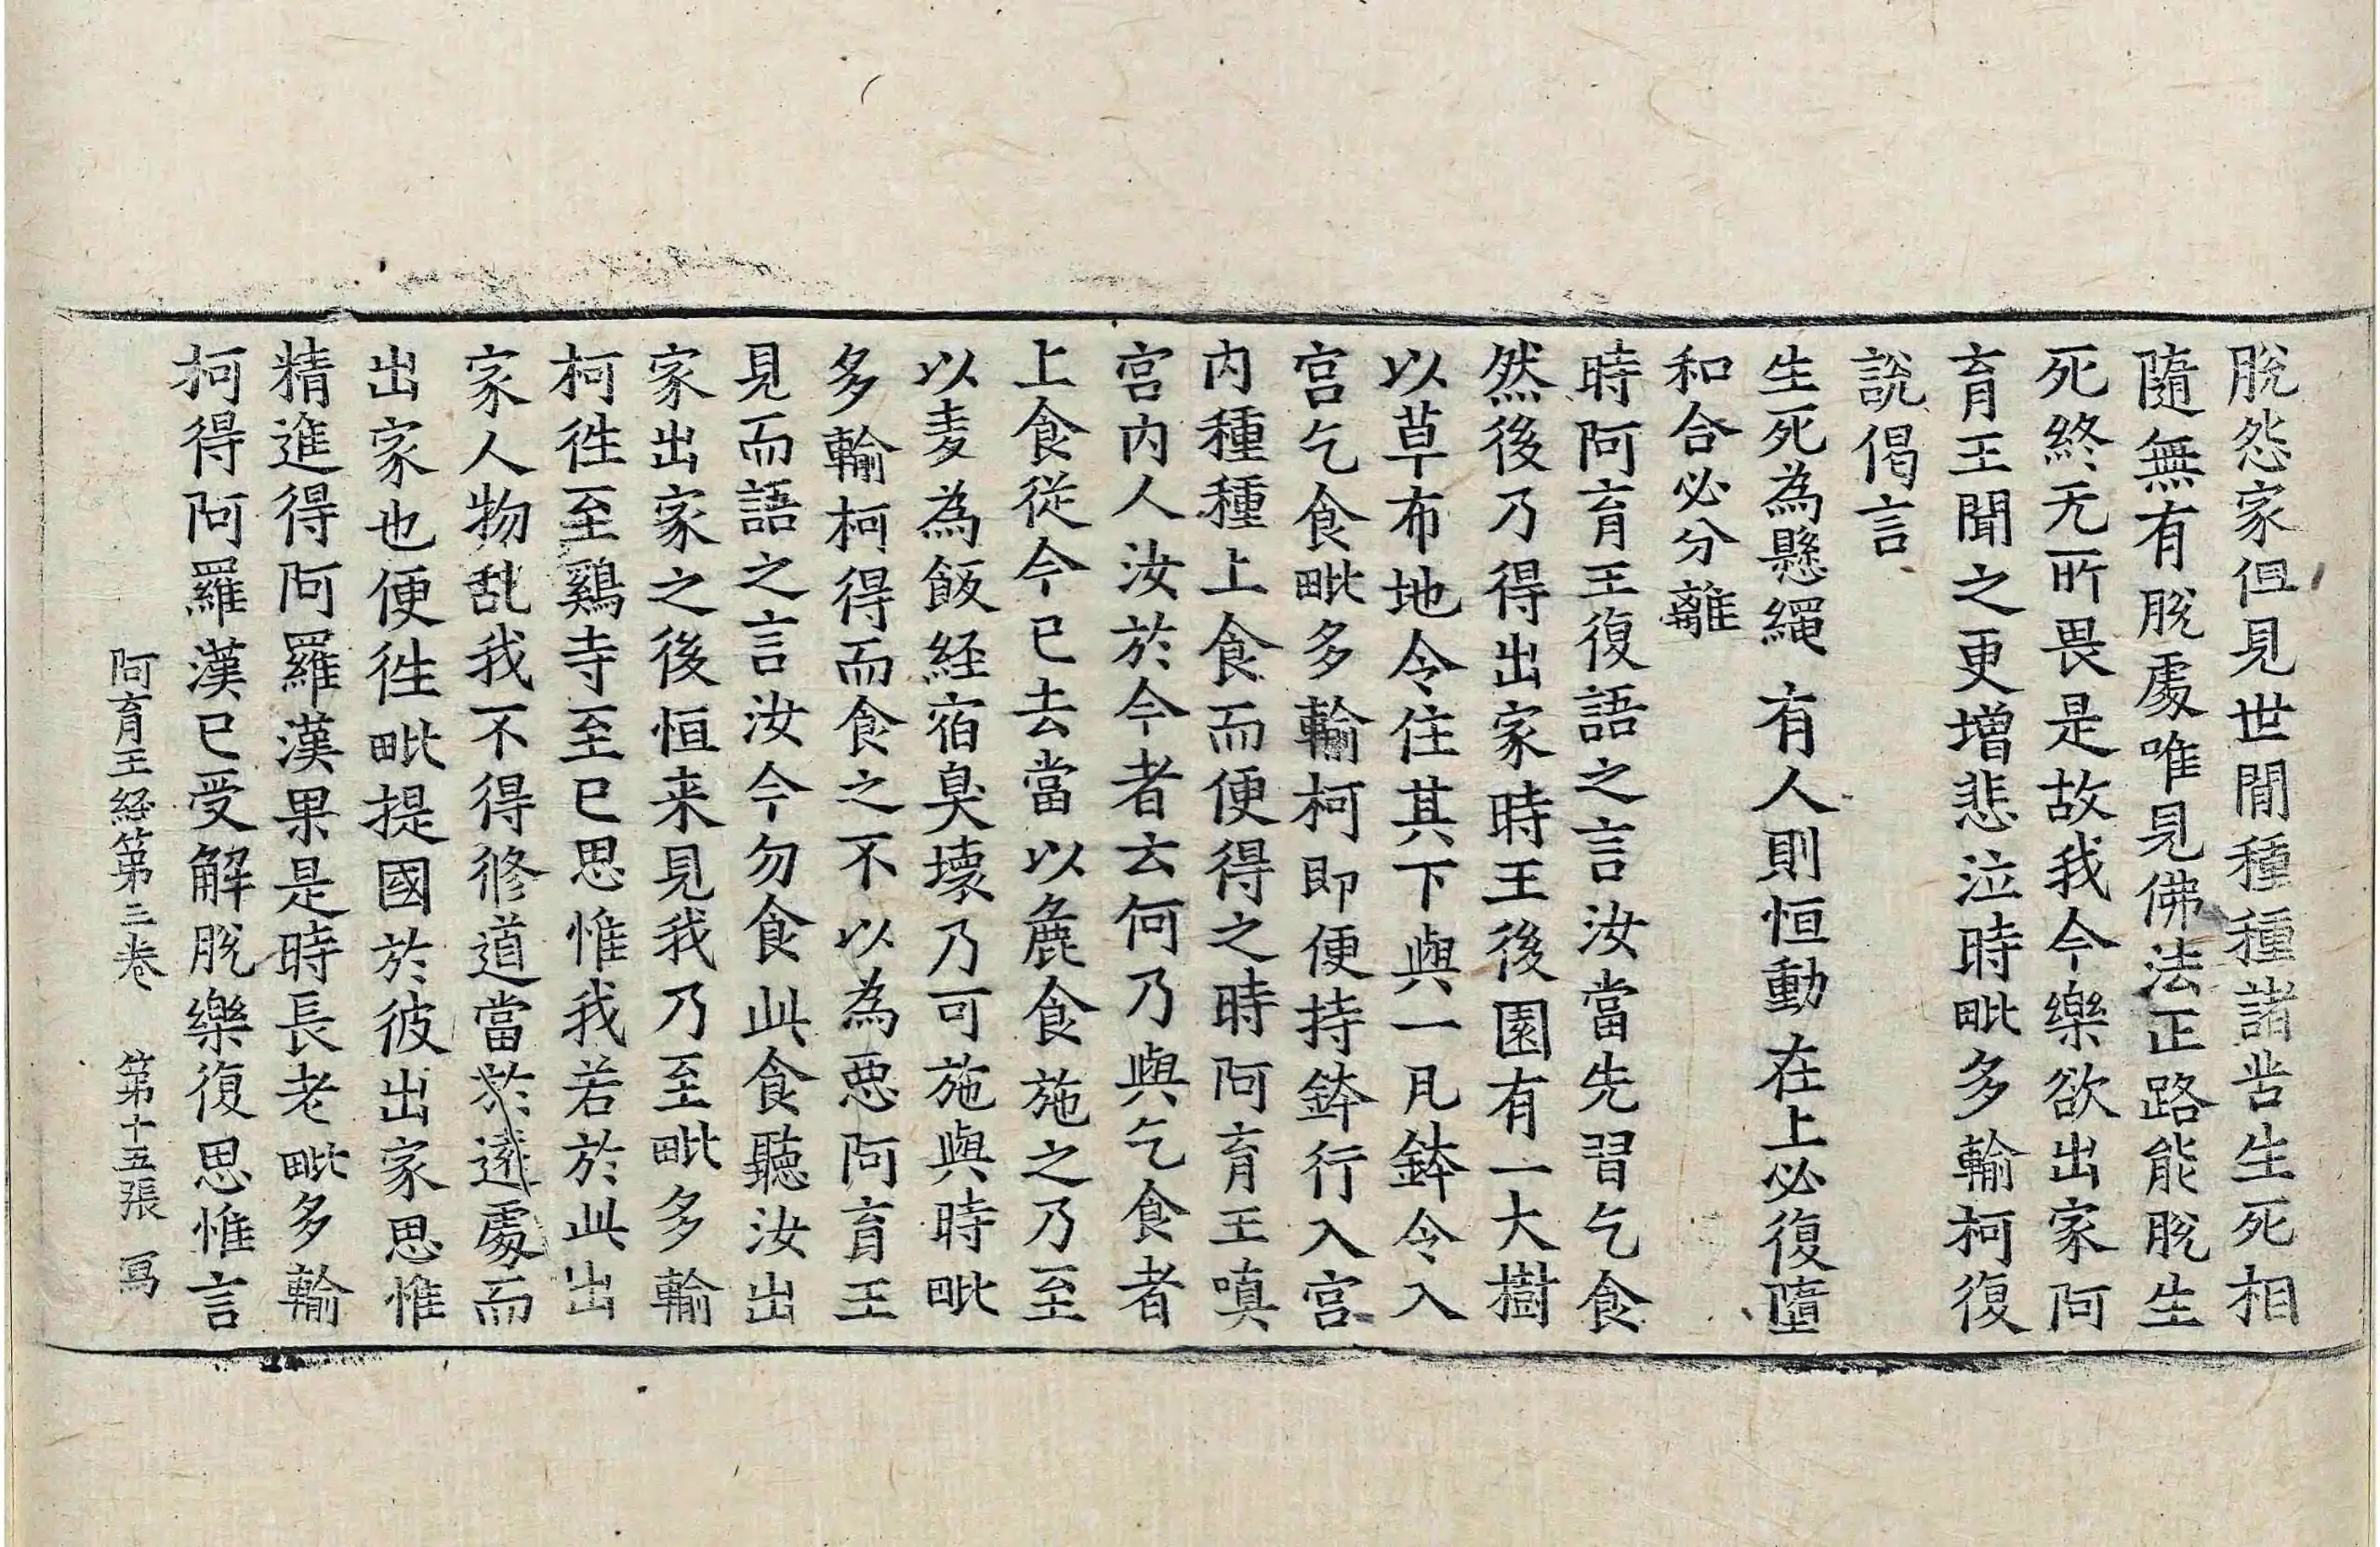 脫怨家但見世間種種諸苦生死相
隨無有脫處唯見佛法正路能脫生
死終无所畏是故我今樂欲出家阿
育王聞之更增悲泣時毗多輸柯復
說偈言
生死為懸繩　有人則恒動　在上必復墮
和合必分離
時阿育王復語之言汝當先習乞食
然後乃得出家時王後園有一大樹
以草布地令住其下與一凡鉢令入
宮乞食毗多輸柯即便持鉢行入宮
内種種上食而便得之時阿育王嗔
宮内人汝於今者云何乃與乞食者
上食從今已去當以麁食施之乃至
以麦為飯経宿臭壞乃可施與時毗
多輸柯得而食之不以為惡阿育王
見而語之言汝今勿食此食聽汝出
家出家之後恒来見我乃至毗多輸
柯徃至鷄寺至已思惟我若於此出
家人物乱我不得修道當於遠處而
出家也便徃毗提國於彼出家思惟
精進得阿羅漢果是時長老毗多輸
柯得阿羅漢已受解脫樂復思惟言
阿育王経第三卷　第十五張　冩